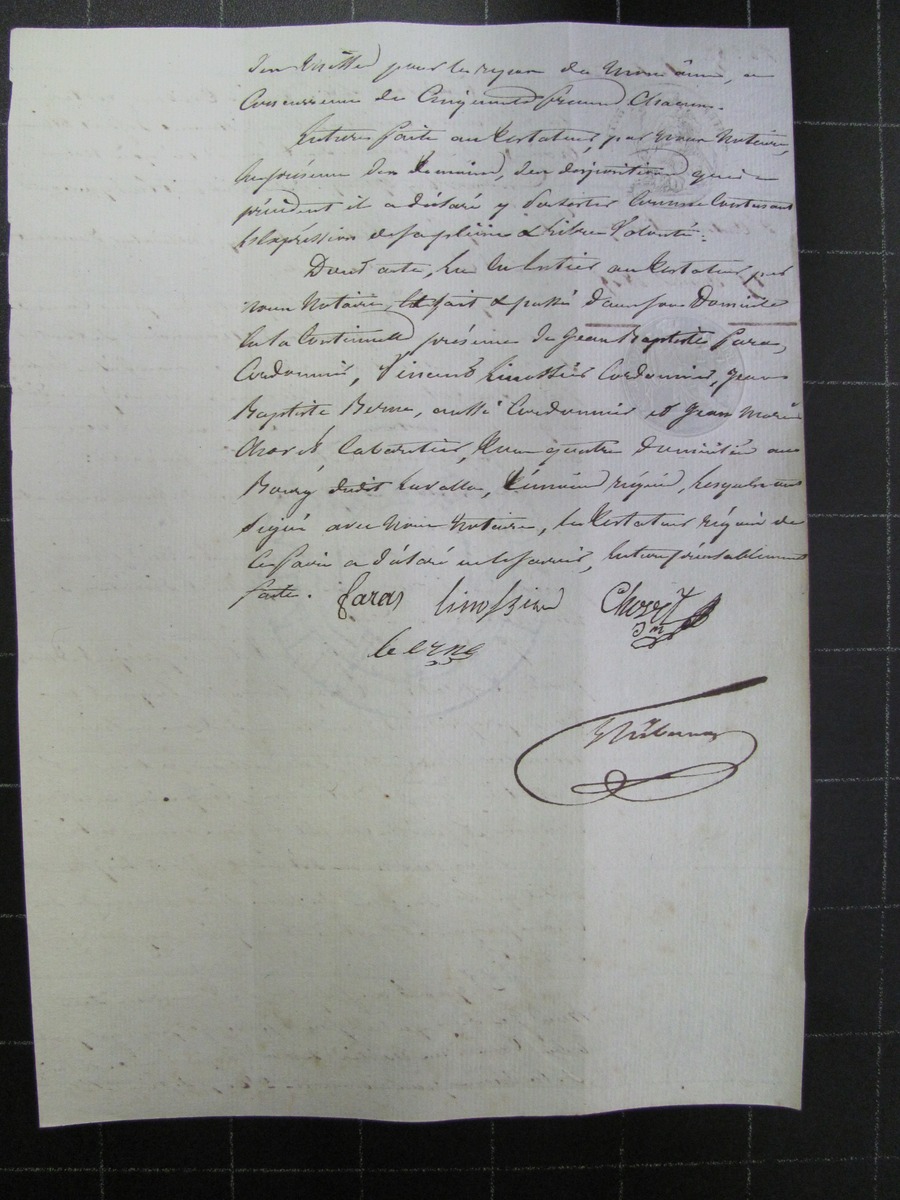 des messes pour le repos de mon âme, en
concurrence de cinquante francs chacun.
Lecture faite au testateur, par nous notaire,
en présence des témoins, des dispositions qui
précédent il a déclaré y persister comme contenant
l'expression de sa pleine & libre volonté.
Dont acte, lu en entier au testateur par
nous notaire, fait & passé dans son domicile
en la continuelle présence de Jean Baptiste Faras,
cordonnier, Vincent Linossier cordonnier, Jean
Baptiste Berne, aussi cordonnier et Jean Marie
cabaretier, tous quatre domiciliés au
Bourg dudit Lavalla, témoins requis, lesquels ont
signé avec nous notaire, le testateur requis de
le faire a déclaré ne le savoir, interpellation
faite.
faras linossier
berne